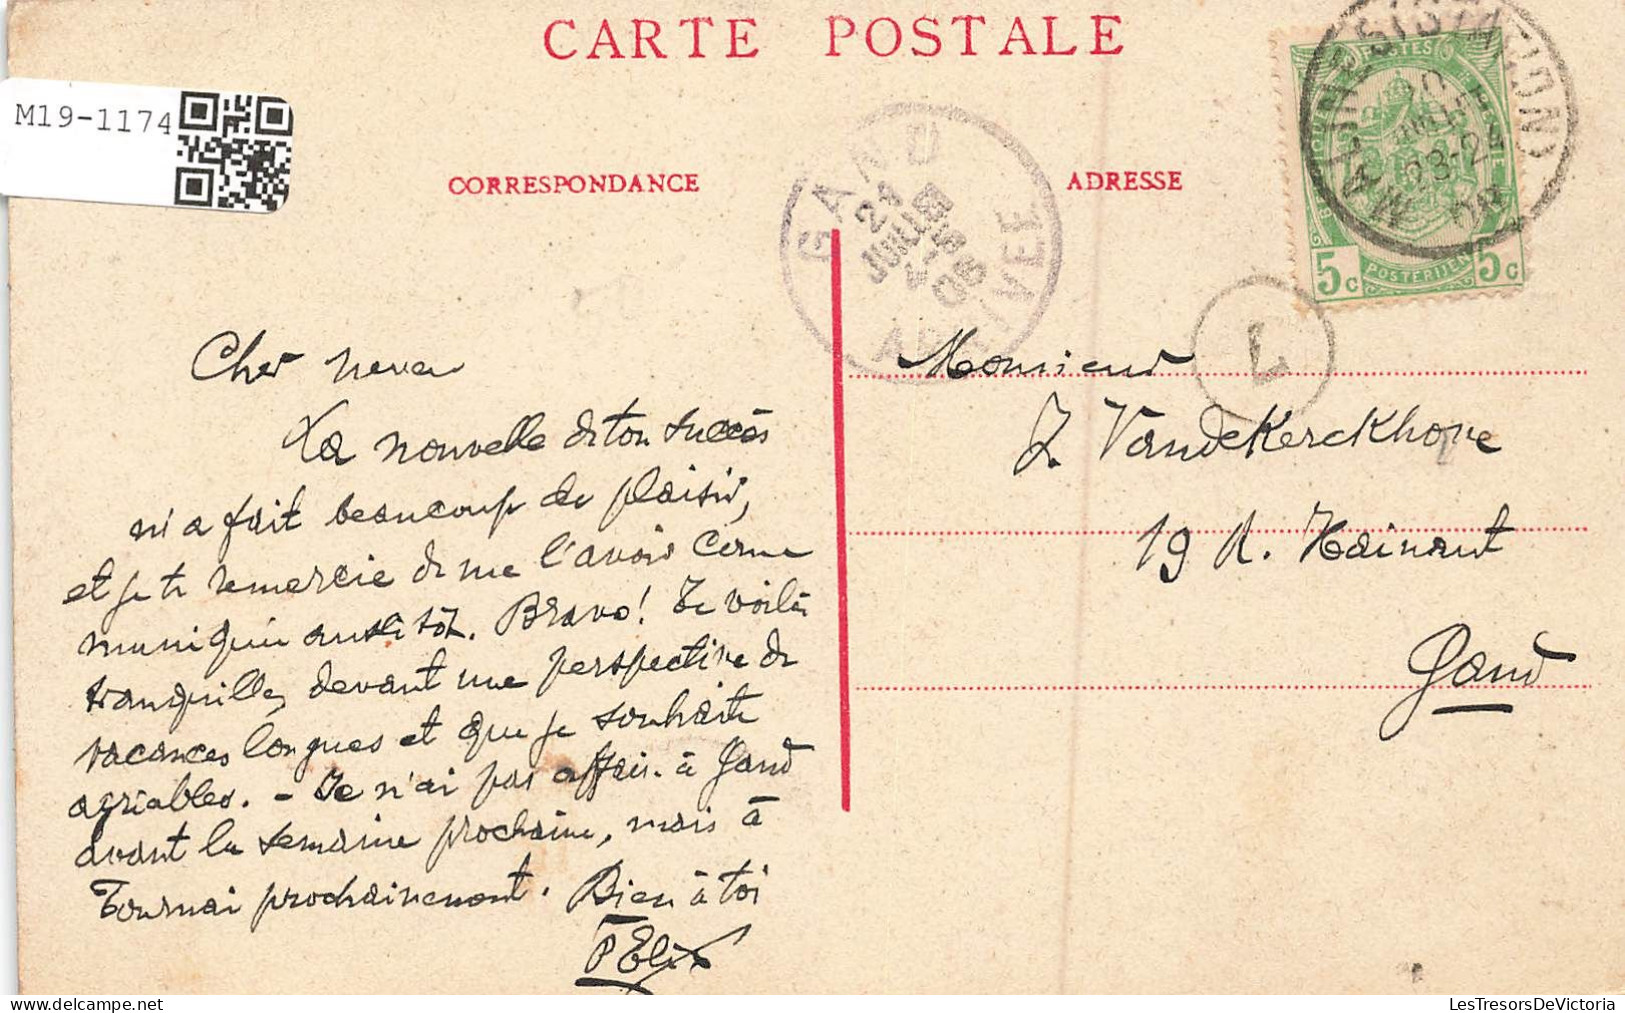 CARTE POSTALE
M19-1174
CORRESPONDANCE
ADRESSE
GAND
21
JUILLET
08
ARRIVEE
(STATION)
23-24
08
POSTES
5c POSTERIJEN 5c
1
Cher neveu
La nouvelle de ton succès
m'a fait beaucoup de plaisir,
et je te remercie de me l'avoir comm
muniquée aussitôt. Bravo! Te voilà
tranquille, devant une perspective de
vacances longues et que je souhaite
agréables. - Je n'ai pas affaire à Gand
avant la semaine prochaine, mais à
Tournai prochainement. Bien à toi
Monsieur
J. VandeKerckhove
19 r. Hainaut
Gand
LesTresorsDeVictoria